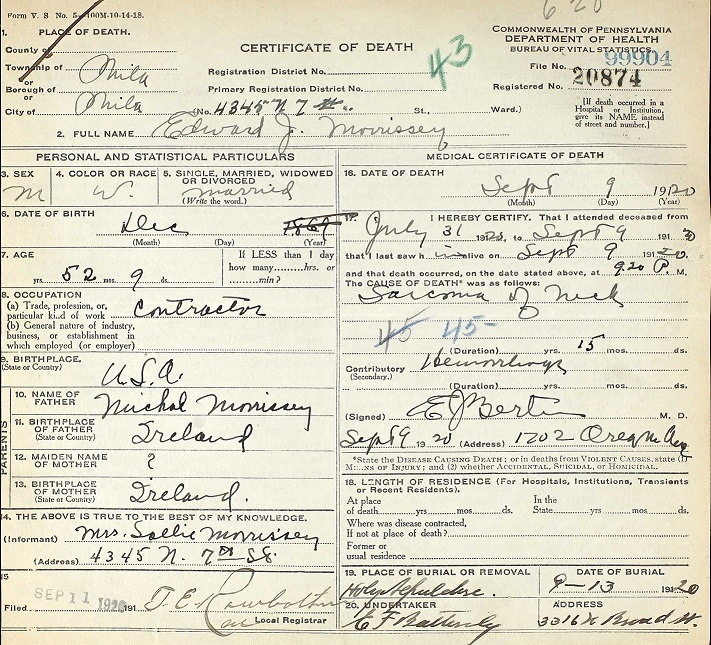 Form V. S No. 5-100M-10-14-18.
1. PLACE OF DEATH.
County of
Township of Phila
or
Borough of
or
City of Phila
CERTIFICATE OF DEATH
Registration District No.
Primary Registration District No.
(No. 4345 N 7 St., Ward.)
43
COMMONWEALTH OF PENNSYLVANIA
DEPARTMENT OF HEALTH
BUREAU OF VITAL STATISTICS
File No. 99904
Registered No. 20874
[If death occurred in a
Hospital or Institution,
give its NAME instead
of street and number.]
2. FULL NAME Edward J. Morrissey
PERSONAL AND STATISTICAL PARTICULARS
3. SEX
M
4. COLOR OR RACE
W.
5. SINGLE, MARRIED, WIDOWED
OR DIVORCED
married
(Write the word.)
6. DATE OF BIRTH
Dec
(Month) (Day) (Year)
7. AGE
52 yrs. 9 mos. ds.
If LESS than 1 day
how many hrs. or
min.?
8. OCCUPATION
(a) Trade, profession, or,
particular kind of work Contractor
(b) General nature of industry,
business, or establishment in
which employed (or employer)
9. BIRTHPLACE.
(State or Country) U.S.A.
PARENTS
10. NAME OF
FATHER Michal Morrissey
11. BIRTHPLACE
OF FATHER
(State or Country) Ireland
12. MAIDEN NAME
OF MOTHER ?
13. BIRTHPLACE
OF MOTHER
(State or Country) Ireland.
14. THE ABOVE IS TRUE TO THE BEST OF MY KNOWLEDGE.
(Informant) Mrs. Sallie Morrissey
(Address) 4345 N. 7th St.
15
Filed SEP 11 1920 191 T. E.
Local Registrar
MEDICAL CERTIFICATE OF DEATH
16. DATE OF DEATH
Sept 9 1920
(Month) (Day) (Year)
17. I HEREBY CERTIFY, That I attended deceased from
July 31 1920, to Sept 9 1920
that I last saw him alive on Sept 9 1920.
and that death occurred, on the date stated above, at 9.20 P. M.
The CAUSE OF DEATH* was as follows:
Sarcoma of Neck
45 45-
(Duration) yrs. 15 mos. ds.
Contributory Hemorrhage
(Secondary.)
(Duration) yrs. mos. ds.
(Signed) E J Bertin M. D.
Sept 9 1920 (Address) 1202 Oregon Ave
*State the DISEASE CAUSING DEATH; or in deaths from VIOLENT CAUSES, state (1)
MEANS OF INJURY; and (2) whether ACCIDENTAL, SUICIDAL, or HOMICIDAL.
18. LENGTH OF RESIDENCE (For Hospitals, Institutions, Transients
or Recent Residents).
At place
of death yrs. mos. ds.
In the
State yrs. mos. ds.
Where was disease contracted,
If not at place of death?
Former or
usual residence
19. PLACE OF BURIAL OR REMOVAL
Holy Sepulchre.
DATE OF BURIAL
9-13 1920
20. UNDERTAKER
E F Batterly
ADDRESS
3316 N Broad St.